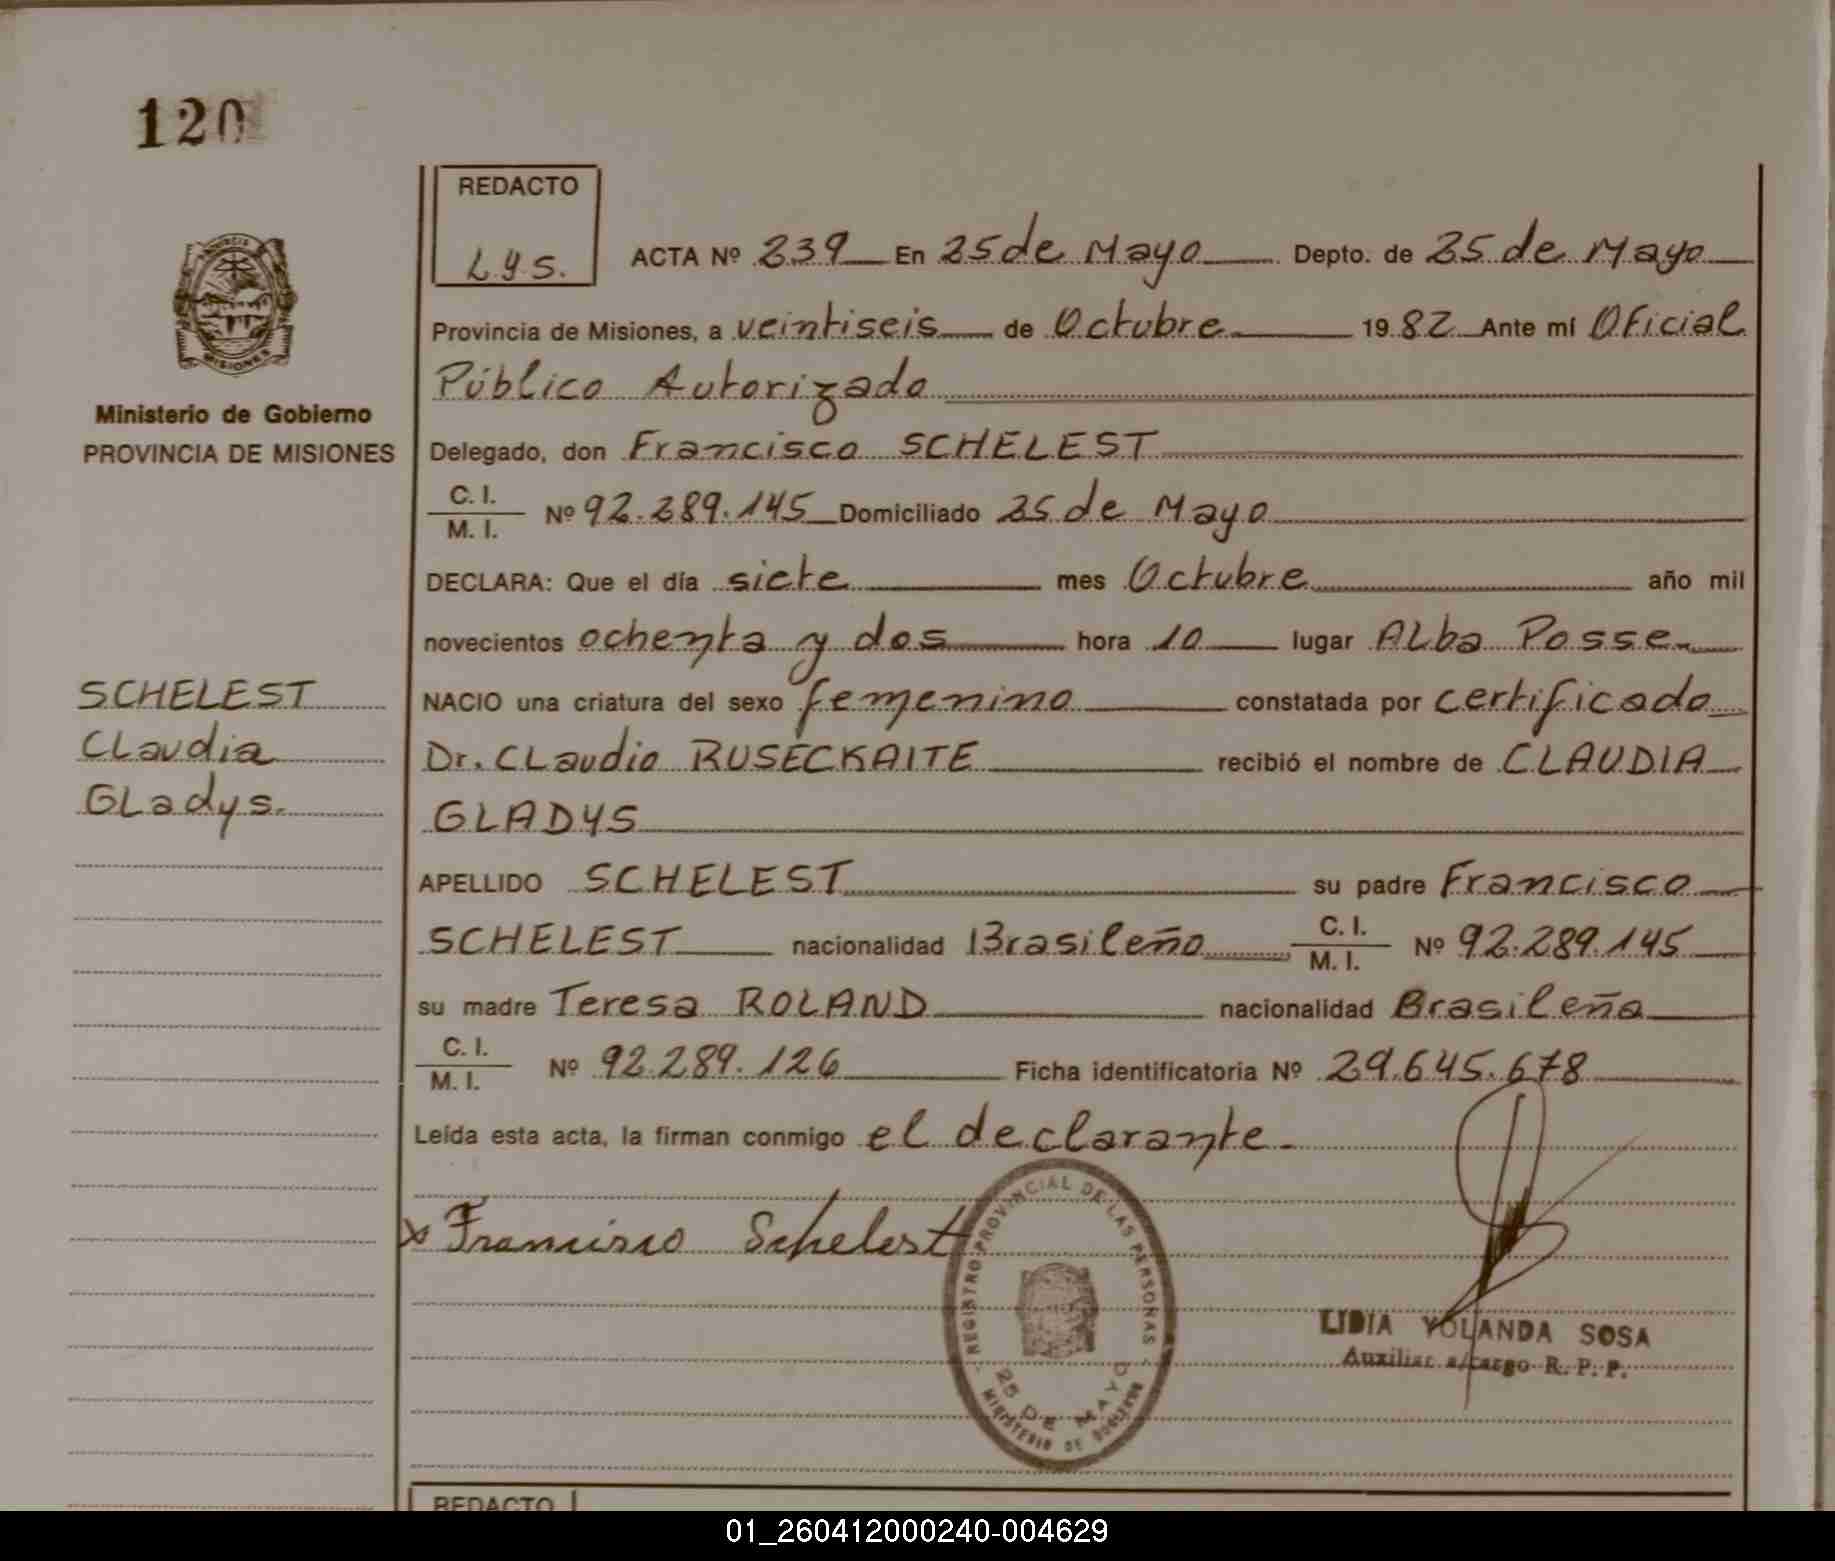 120
REDACTO
L.Y.S.
ACTA Nº 239 En 25 de Mayo Depto. de 25 de Mayo
Provincia de Misiones, a veintiseis de Octubre 1982 Ante mí Oficial
Público Autorizado
Ministerio de Gobierno
PROVINCIA DE MISIONES
Delegado, don Francisco SCHELEST
C. I.
M. I.
Nº 92.289.145 Domiciliado 25 de Mayo
DECLARA: Que el día siete mes Octubre año mil
novecientos ochenta y dos hora 10 lugar Alba Posse
SCHELEST
Claudia
Gladys.
NACIO una criatura del sexo femenino constatada por certificado
Dr. Claudio RUSECKAITE recibió el nombre de CLAUDIA
GLADYS
APELLIDO SCHELEST su padre Francisco
SCHELEST nacionalidad Brasileño C. I. M. I. Nº 92.289.145
su madre Teresa ROLAND nacionalidad Brasileña
C. I.
M. I.
Nº 92.289.126 Ficha identificatoria Nº 29.645.678
Leída esta acta, la firman conmigo el declarante.
x Francisco Schelest
REGISTRO PROVINCIAL DE LAS PERSONAS
25 DE MAYO
MINISTERIO DE GOBIERNO
LIDIA YOLANDA SOSA
Auxiliar a/cargo R. P. P.
REDACTO
01_260412000240-004629